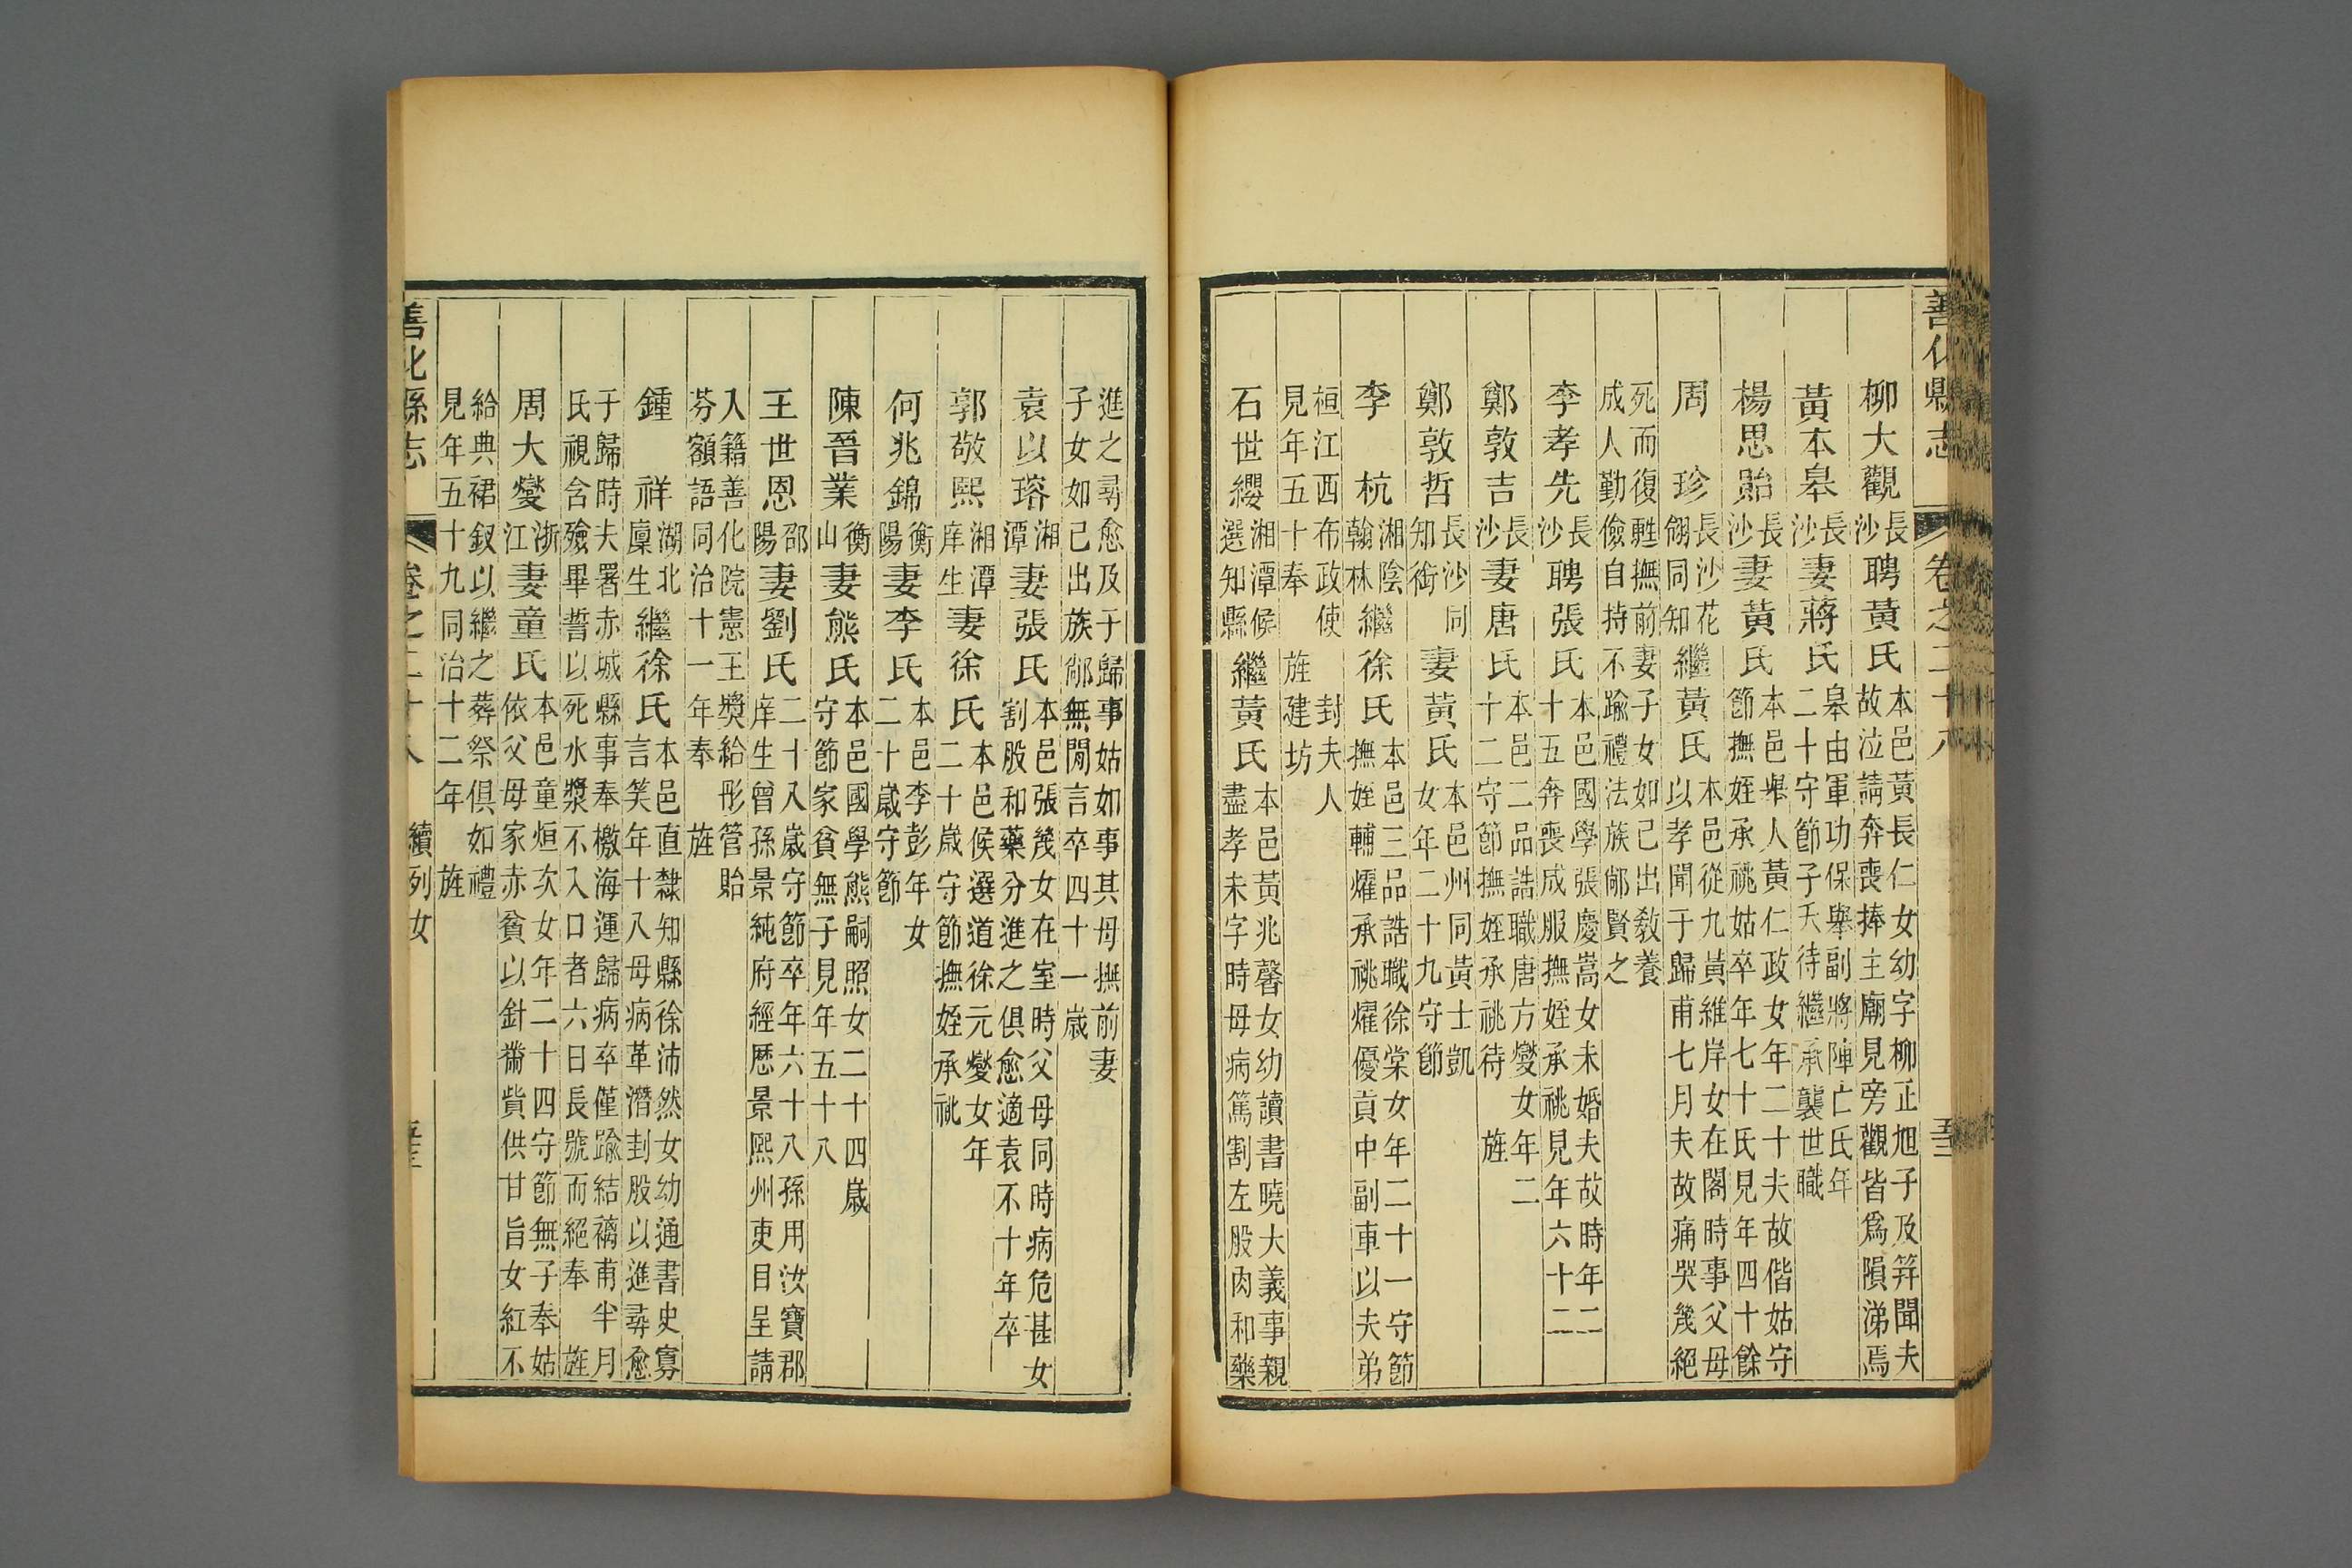 善化縣志 卷之二十八
柳大觀 長沙 聘黃氏 本邑黃長仁女幼字柳正旭子及笄聞夫故泣請奔喪捧主廟見旁觀皆爲隕涕焉
黃本皋 長沙 妻蔣氏 皋由軍功保舉副將陣亡氏年二十守節子夭待繼承襲世職
楊思貽 長沙 妻黃氏 本邑舉人黃仁政女年二十夫故偕姑守節撫姪承祧姑卒年七十氏見年四十餘
周珍 長沙花翎同知 繼黃氏 本邑從九黃維岸女在閣時事父母以孝聞于歸甫七月夫故痛哭幾絕
死而復甦撫前妻子女如己出敎養成人勤儉自持不踰禮法族鄰賢之
李孝先 長沙 聘張氏 本邑國學張慶嵩女未婚夫故時年二十五奔喪成服撫姪承祧見年六十二
鄭敦吉 長沙 妻唐氏 本邑二品誥職唐方夔女年二十二守節撫姪承祧待 旌
鄭敦哲 長沙同知銜 妻黃氏 本邑州同黃士凱女年二十九守節
李杭 湘陰翰林 繼徐氏 本邑三品誥職徐棠女年二十一守節撫姪輔燿承祧燿優貢中副車以夫弟
桓江西布政使 封夫人見年五十奉 旌建坊
石世纓 湘潭候選知縣 繼黃氏 本邑黃兆馨女幼讀書曉大義事親盡孝未字時母病篤割左股肉和藥
進之尋愈及于歸事姑如事其母撫前妻子女如己出族鄰無閒言卒四十一歲
袁以瑢 湘潭 妻張氏 本邑張幾女在室時父母同時病危甚女割股和藥分進之俱愈適袁不十年卒
郭敬熙 湘潭庠生 妻徐氏 本邑候選道徐元燮女年二十歲守節撫姪承祧
何兆錦 衡陽 妻李氏 本邑李彭年女二十歲守節
陳晉業 衡山 妻熊氏 本邑國學熊嗣照女二十四歲守節家貧無子見年五十八
王世恩 邵陽 妻劉氏 二十八歲守節卒年六十八孫用汝寶郡庠生曾孫景純府經歷景熙州吏目呈請
入籍善化院憲王奬給彤管貽芬額語同治十一年奉 旌
鍾祥 湖北廩生 繼徐氏 本邑直隸知縣徐沛然女幼通書史寡言笑年十八母病革潛刲股以進尋愈
于歸時夫署赤城縣事奉檄海運歸病卒僅踰結褵甫半月氏視含殮畢誓以死水漿不入口者六日長號而絕奉 旌
周大燮 浙江 妻童氏 本邑童烜次女年二十四守節無子奉姑依父母家赤貧以針黹貲供甘旨女紅不
給典裙釵以繼之葬祭俱如禮見年五十九同治十二年 旌
善化縣志 卷之二十八 續列女